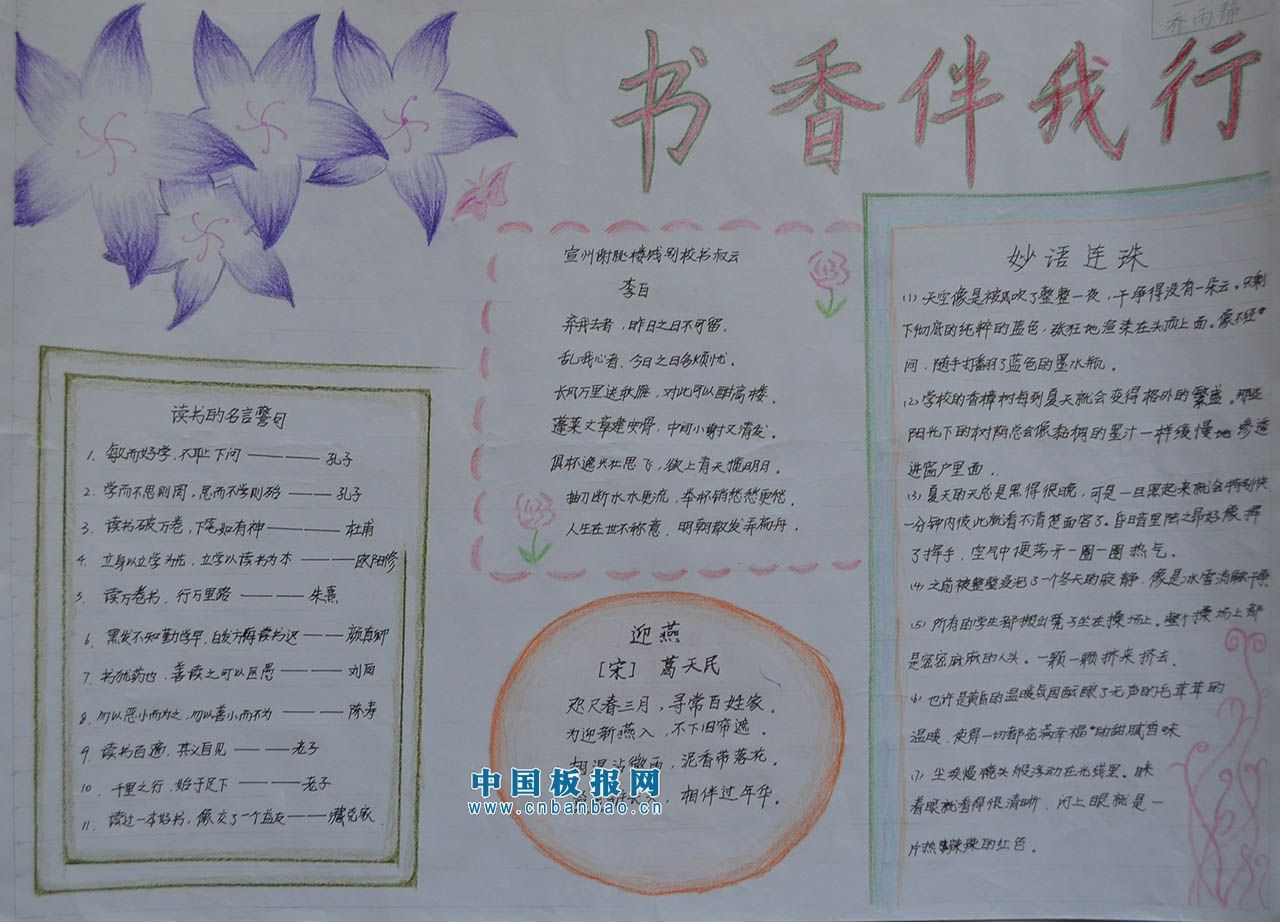 乔雨静
书香伴我行
读书的名言警句
1. 敏而好学,不耻下问 ——— 孔子
2. 学而不思则罔,思而不学则殆 ——— 孔子
3. 读书破万卷,下笔如有神 ——— 杜甫
4. 立身以立学为先,立学以读书为本 ——— 欧阳修
5. 读万卷书,行万里路 ——— 朱熹
6. 黑发不知勤学早,白首方悔读书迟 ——— 颜真卿
7. 书犹药也,善读之可以医愚 ——— 刘向
8. 勿以恶小而为之,勿以善小而不为 ——— 陈寿
9. 读书百遍,其义自见 ——— 老子
10. 千里之行,始于足下 ——— 老子
11. 读过一本好书,像交了一个益友 ——— 臧克家
宣州谢朓楼饯别校书叔云
李白
弃我去者,昨日之日不可留。
乱我心者,今日之日多烦忧。
长风万里送秋雁,对此可以酣高楼。
蓬莱文章建安骨,中间小谢又清发。
俱怀逸兴壮思飞,欲上青天揽明月。
抽刀断水水更流,举杯销愁愁更愁。
人生在世不称意,明朝散发弄扁舟。
迎燕
[宋] 葛天民
咫尺春三月,寻常百姓家。
为迎新燕入,不下旧帘遮。
翅湿沾微雨,泥香带落花。
相伴过年华。
中国板报网
www.cnbanbao.cn
妙语连珠
(1) 天空像是被风吹了整整一夜,干净得没有一朵云。只剩
下彻底的纯粹的蓝色,张狂地渲染在头顶上面。像不经
间,随手打翻了蓝色的墨水瓶。
(2) 学校的香樟树每到夏天就会变得格外的繁盛。那些
阳光下的树阴总会像黏稠的墨汁一样缓慢地渗透
进窗户里面。
(3) 夏天的天总是黑得很晚,可是一旦黑起来就会特别快
一分钟内彼此就看不清楚面容了。昏暗里陆之昂好像挥
了挥手,空气中便荡开一圈一圈热气。
(4) 之前被整整浸泡了一个冬天的寂静,像是冰雪消融干净
(5) 所有的学生都搬出凳子坐在操场上。整个操场上都
是密密麻麻的人头。一颗一颗挤来挤去。
(6) 也许是黄昏的温暖氛围酝酿了无声的毛茸茸的
温暖,使得一切都充满幸福的甜腻香味
(7) 尘埃慢镜头般浮动在光线里。眯
着眼就看得很清晰,闭上眼就是一
片热辣辣的红色。